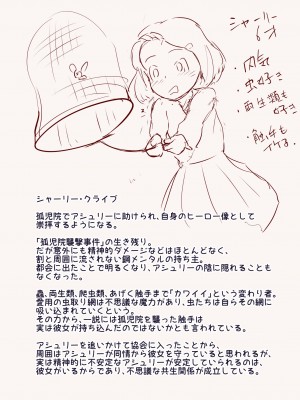 シャーリー
6才
・内気
・虫好き
・両生類も
好き
・触手も
イケる
シャーリー・クライブ
孤児院でアシュリーに助けられ、自身のヒーロー像として
崇拝するようになる。
「孤児院襲撃事件」の生き残り。
だが意外にも精神的ダメージなどはほとんどなく、
割と周囲に流されない鋼メンタルの持ち主。
都会に出たことで明るくなり、アシュリーの陰に隠れることも
なくなった。
蟲、両生類、爬虫類、あげく触手まで「カワイイ」という変わり者。
愛用の虫取り網は不思議な魔力があり、虫たちは自らその網に
吸い込まれていくという。
その力から、一説には孤児院を襲った触手は
実は彼女が持ち込んだのではないかとも言われている。
アシュリーを追いかけて協会に入ったことから、
周囲はアシュリーが同情から彼女を守っていると思われるが、
実は精神的に不安定なアシュリーが安定していられるのは、
彼女がいるからであり、不思議な共生関係が成立している。